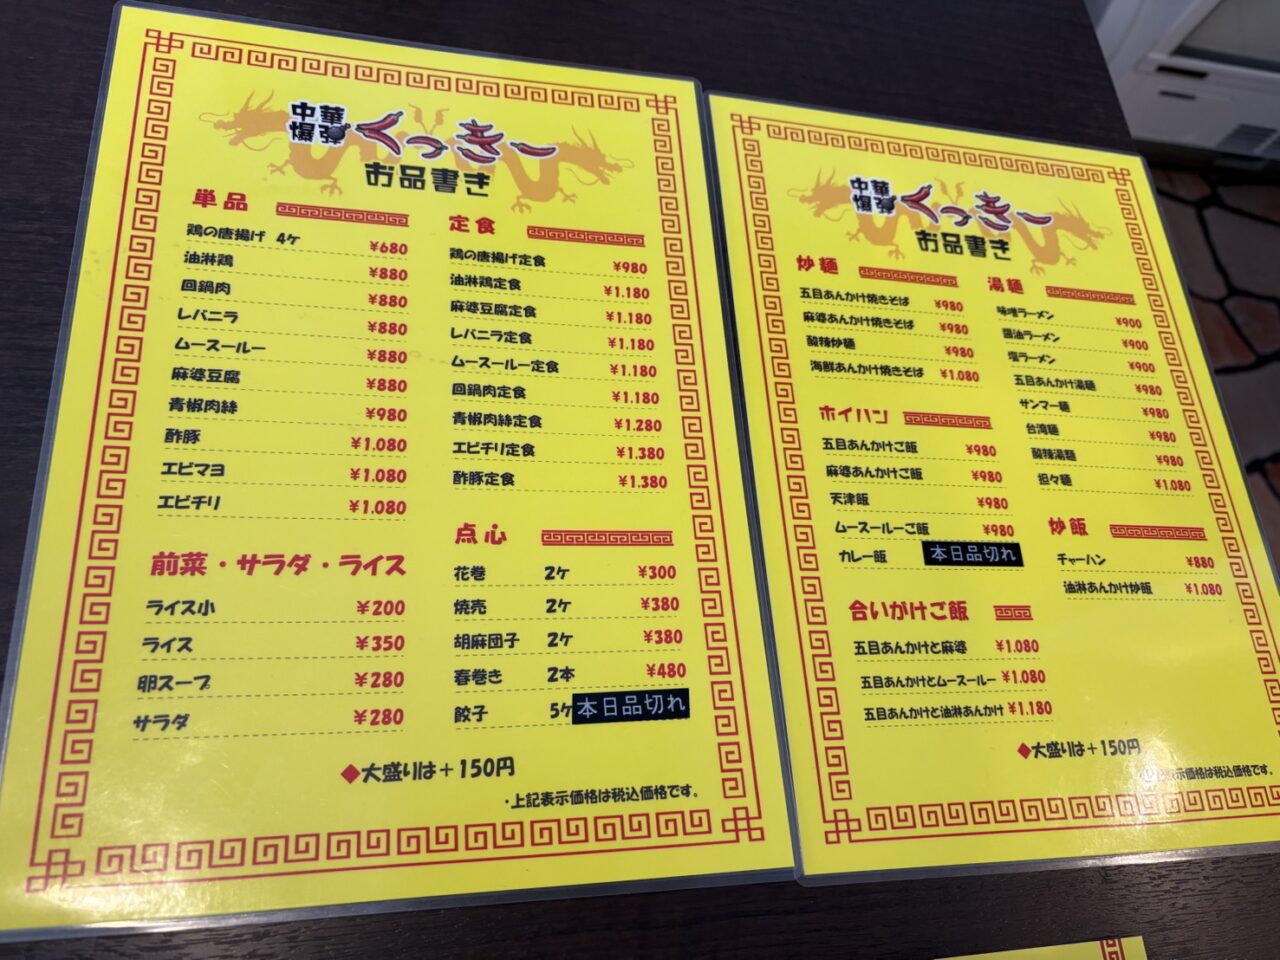 中華
爆弾
くっきー
お品書き
単品
鶏の唐揚げ 4ケ ¥680
油淋鶏 ¥880
回鍋肉 ¥880
レバニラ ¥880
ムースールー ¥880
麻婆豆腐 ¥880
青椒肉絲 ¥980
酢豚 ¥1.080
エビマヨ ¥1.080
エビチリ ¥1.080
前菜・サラダ・ライス
ライス小 ¥200
ライス ¥350
卵スープ ¥280
サラダ ¥280
定食
鶏の唐揚げ定食 ¥980
油淋鶏定食 ¥1.180
麻婆豆腐定食 ¥1.180
レバニラ定食 ¥1.180
ムースールー定食 ¥1.180
回鍋肉定食 ¥1.180
青椒肉絲定食 ¥1.280
エビチリ定食 ¥1.380
酢豚定食 ¥1.380
点心
花巻 2ケ ¥300
焼売 2ケ ¥380
胡麻団子 2ケ ¥380
春巻き 2本 ¥480
餃子 5ケ 本日品切れ
◆大盛りは+150円
・上記表示価格は税込価格です。
中華
爆弾
くっきー
お品書き
炒麺
五目あんかけ焼きそば ¥980
麻婆あんかけ焼きそば ¥980
酸辣炒麺 ¥980
海鮮あんかけ焼きそば ¥1.080
ホイハン
五目あんかけご飯 ¥980
麻婆あんかけご飯 ¥980
天津飯 ¥980
ムースールーご飯 ¥980
カレー飯 本日品切れ
合いがけご飯
五目あんかけと麻婆 ¥1.080
五目あんかけとムースールー ¥1.080
五目あんかけと油淋あんかけ ¥1.180
湯麺
味噌ラーメン ¥900
醤油ラーメン ¥900
塩ラーメン ¥900
五目あんかけ湯麺 ¥980
サンマー麺 ¥980
台湾麺 ¥980
酸辣湯麺 ¥980
担々麺 ¥1.080
炒飯
チャーハン ¥880
油淋あんかけ炒飯 ¥1.080
◆大盛りは+150円
表示価格は税込価格です。